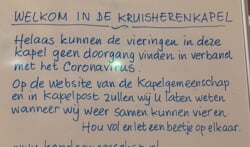 WELKOM IN DE KRUISHERENKAPEL
Helaas kunnen de vieringen in deze
kapel geen doorgang vinden in verband
met het Coronavirus.
Op de website van de Kapelgemeenschap
en in Kapelpost zullen wij U laten weten
wanneer wij weer samen kunnen vieren.
Hou vol en let een beetje op elkaar.